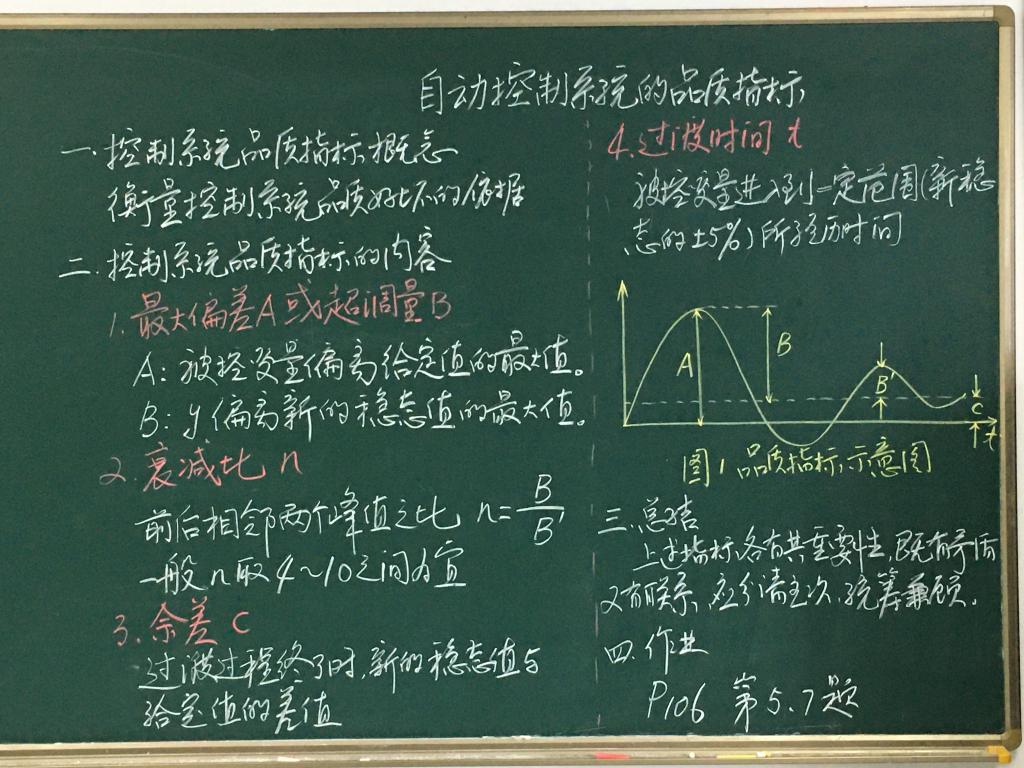 自动控制系统的品质指标
一.控制系统品质指标概念
衡量控制系统品质好坏的依据
二.控制系统品质指标的内容
1.最大偏差A或超调量B
A:被控变量偏离给定值的最大值。
B:y偏离新的稳态值的最大值。
2.衰减比 n
前后相邻两个峰值之比 n=B/B'
一般n取4~10之间为宜
3.余差 C
过渡过程终了时,新的稳态值与
给定值的差值
4.过渡时间 t
被控变量进入到一定范围(新稳
态的±5%)所经历时间
A
B
B'
C
t
图1 品质指标示意图
三.总结
上述指标各有其重要性,既有矛盾
又有联系,应分清主次,统筹兼顾。
四.作业
P106 第5.7题